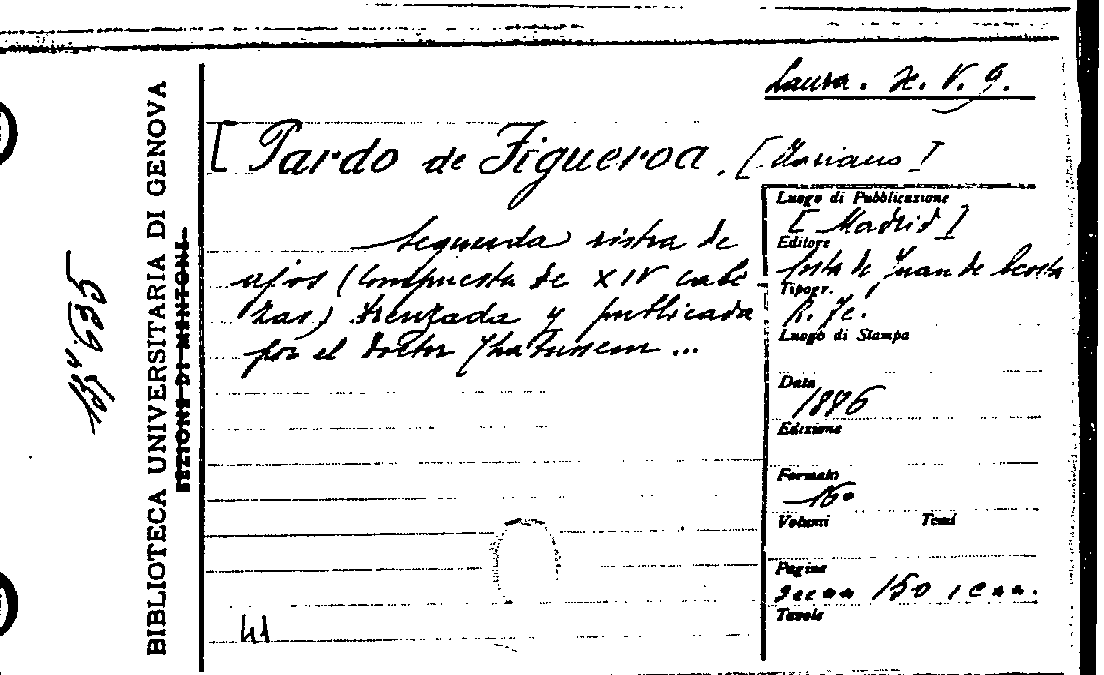 Laura. X. V. 9.
[ Pardo de Figueroa, [Mariano]
Segunda ristra de
ajos (compuesta de XIV cabe
zas) trenzada y publicada
por el doctor Thebussem ...
41
Luogo di Pubblicazione
[ Madrid ]
Editore
Costa de Juan de Acosta
Tipogr.
R. Fe.
Luogo di Stampa
Data
1886
Edizione
Formato
16°
Volumi Tomi
Pagine
150
Tavole
BIBLIOTECA UNIVERSITARIA DI GENOVA
SEZIONE DI MENTONE